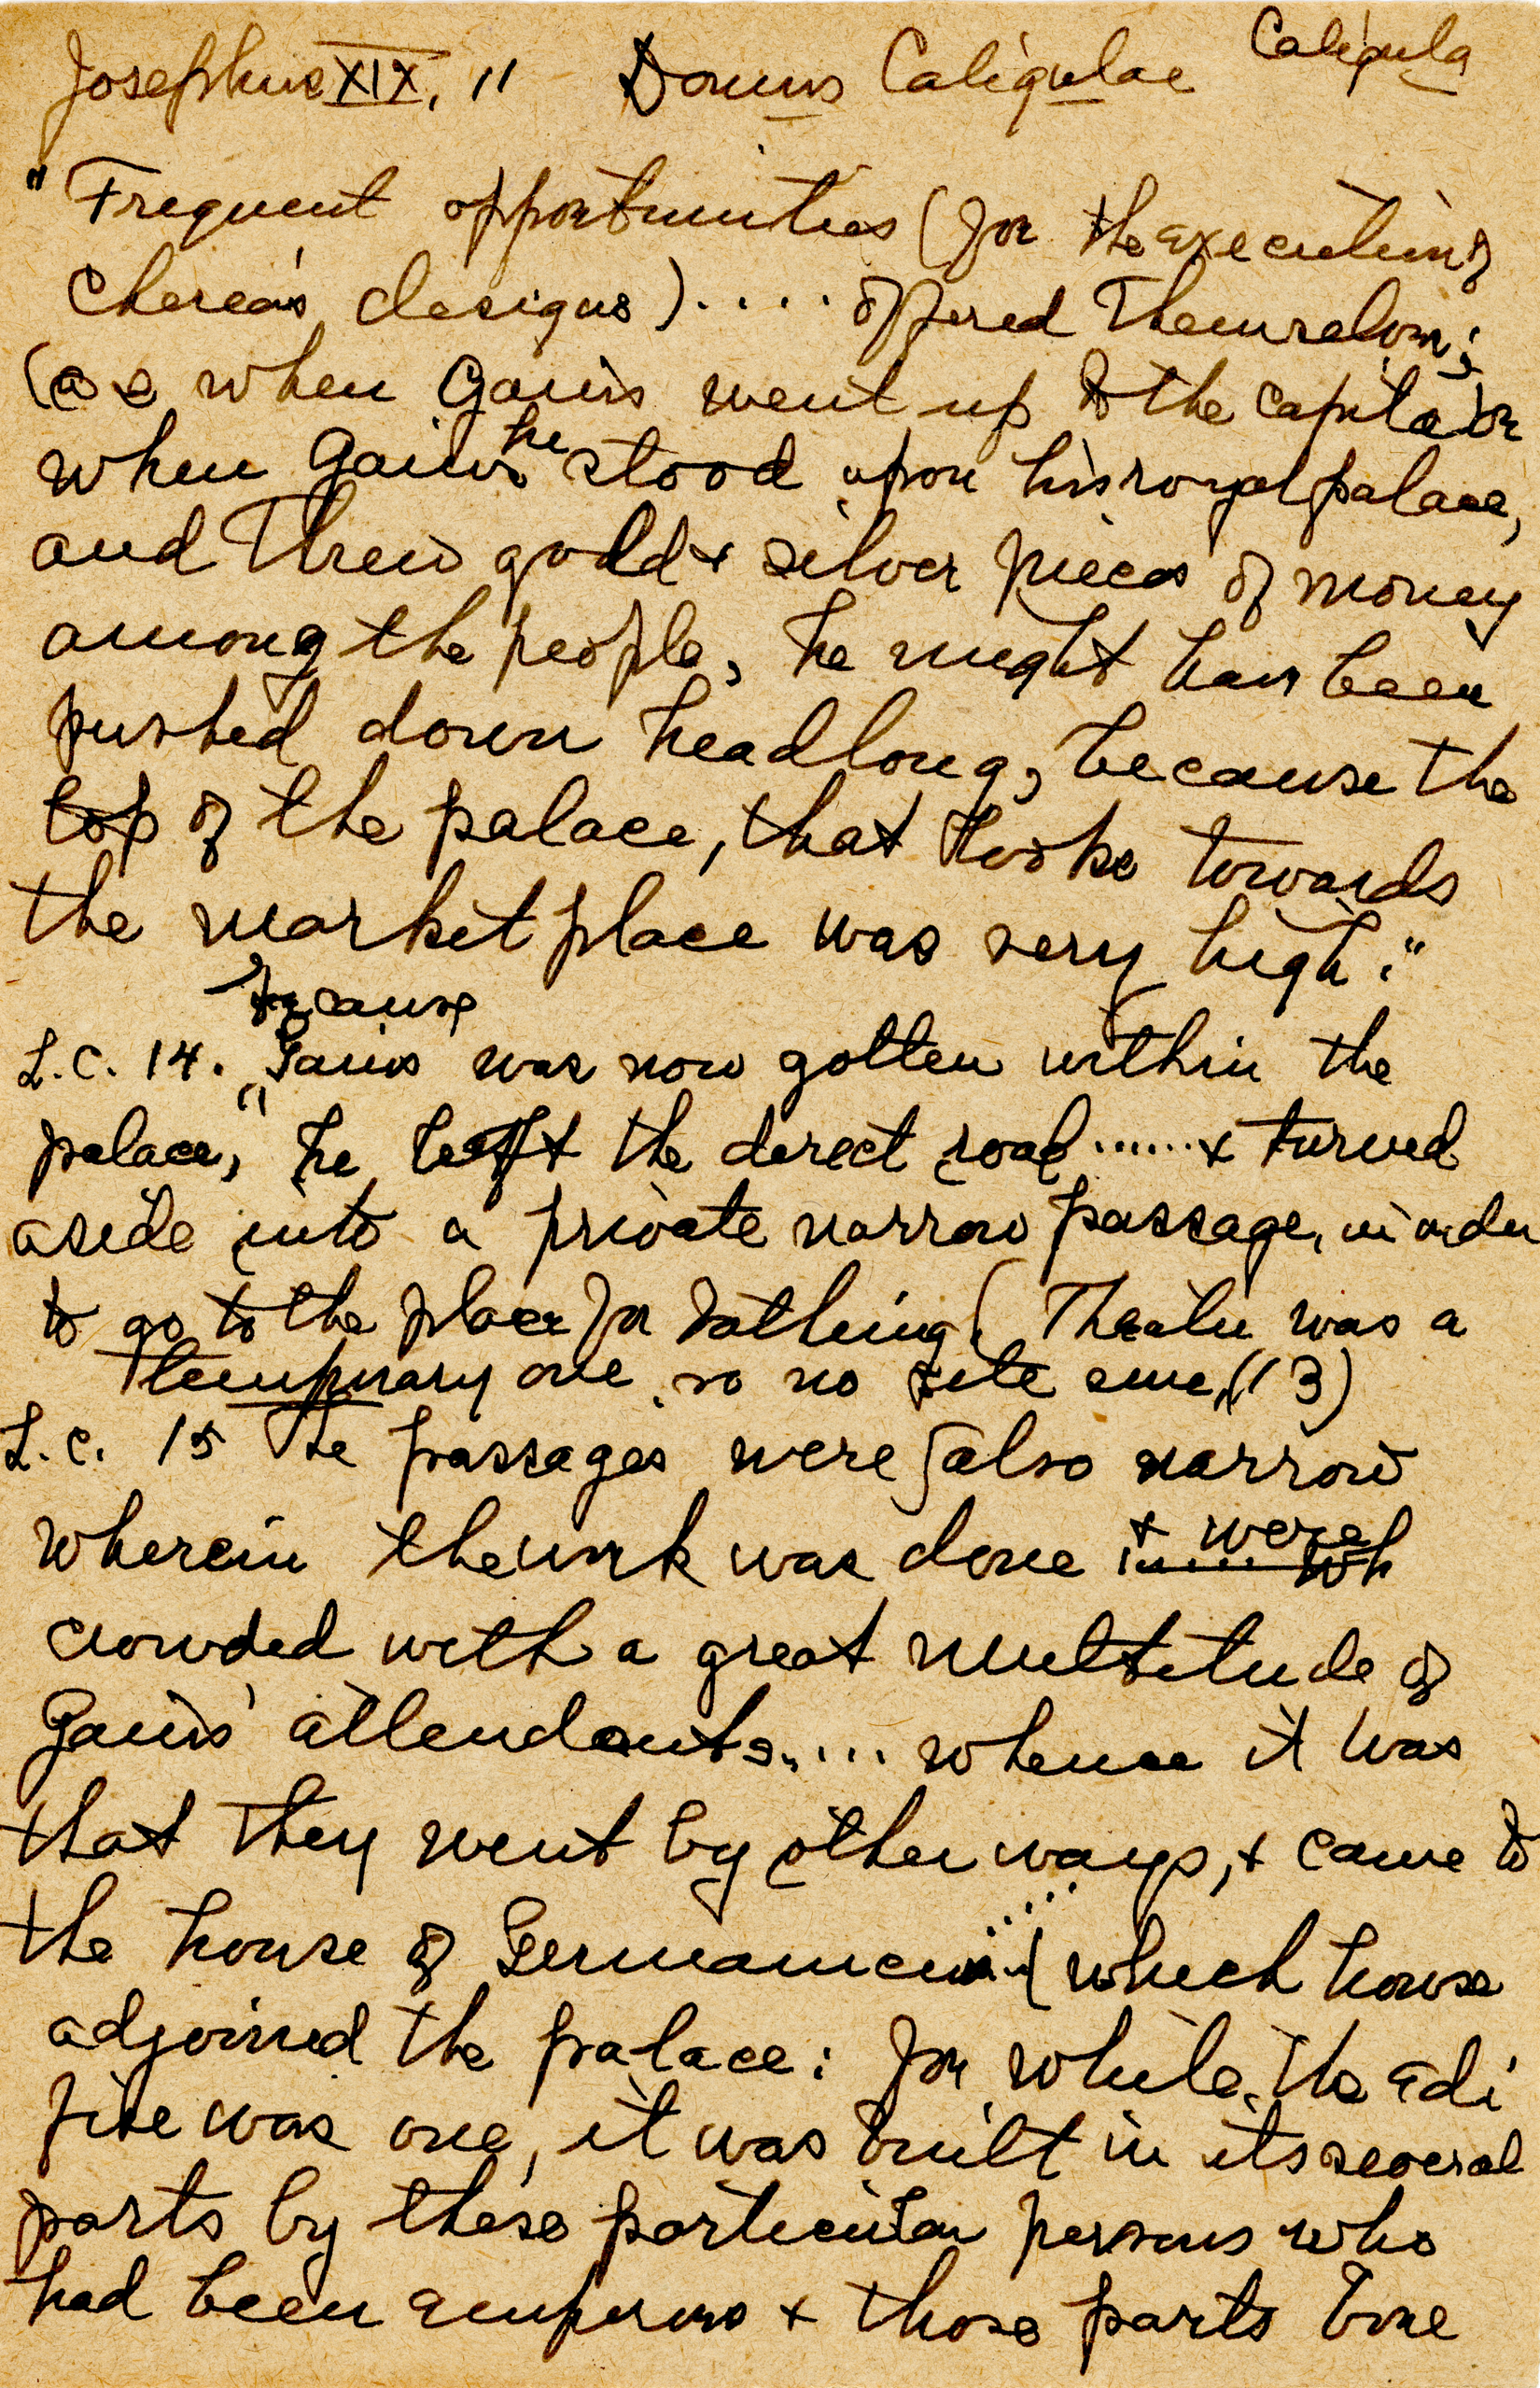 Josephus XIX, 11 Domus Caligulae Caligula
"Frequent opportunities (for the execution of
Cherea's designs) . . . . offered themselves;
(as when Gaius went up to the capital) or
when Gaius he stood upon his royal palace,
and threw gold + silver pieces of money
among the people, he might have been
pushed down headlong, because the
top of the palace, that looks towards
the market place was very high."
because
L.C. 14. "Gaius was now gotten within the
palace, he left the direct road ...... + turned
aside into a private narrow passage, in order
to go to the place for bathing (Theatre was a
temporary one so no site (13)
L.C. 15 The passages were also narrow
wherein the work was done + were
crowded with a great multitude of
Gaius' attendants..... whence it was
that they went by other ways, + came to
the house of Germanicus .... (which house
adjoined the palace: for while the edi
fice was one, it was built in its several
parts by those particular persons who
had been emperors + those parts bore